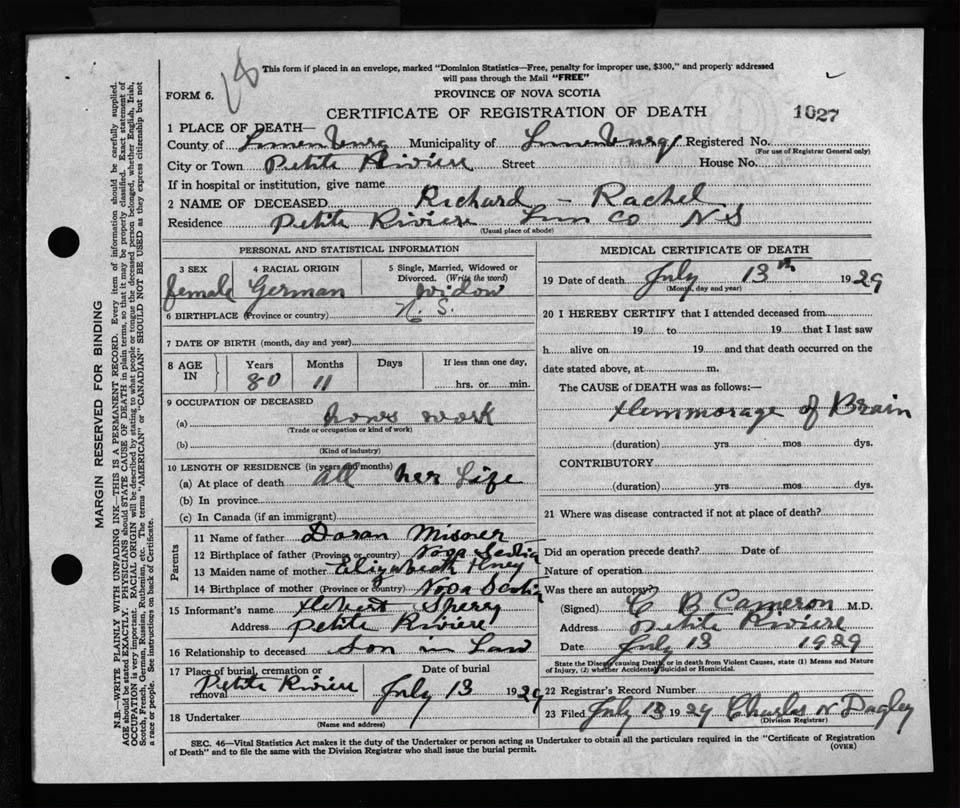 18
This form if placed in an envelope, marked "Dominion Statistics—Free, penalty for improper use, $300," and properly addressed
will pass through the Mail "FREE"
FORM 6. PROVINCE OF NOVA SCOTIA
CERTIFICATE OF REGISTRATION OF DEATH 1027
1 PLACE OF DEATH—
County of Lunenburg Municipality of Lunenburg Registered No.
(For use of Registrar General only)
City or Town Petite Riviere Street House No.
If in hospital or institution, give name
2 NAME OF DECEASED Richard - Rachel
Residence Petite Riviere Lun Co N S
(Usual place of abode)
PERSONAL AND STATISTICAL INFORMATION
3 SEX 4 RACIAL ORIGIN 5 Single, Married, Widowed or Divorced. (Write the word)
female German widow
6 BIRTHPLACE (Province or country) N. S.
7 DATE OF BIRTH (month, day and year)
8 AGE IN Years Months Days If less than one day,
80 11 hrs. or min.
9 OCCUPATION OF DECEASED
(a) hows work
(Trade or occupation or kind of work)
(b)
(Kind of industry)
10 LENGTH OF RESIDENCE (in years and months)
(a) At place of death all her Life
(b) In province
(c) In Canada (if an immigrant)
Parents
11 Name of father Daran Misner
12 Birthplace of father (Province or country) Nova Scotia
13 Maiden name of mother Elizabeth
14 Birthplace of mother (Province or country) Nova Scotia
15 Informant's name Hebert Sperry
Address Petite Riviere
16 Relationship to deceased Son in Law
17 Place of burial, cremation or removal Date of burial
Petite Riviere July 13 1929
18 Undertaker
(Name and address)
MEDICAL CERTIFICATE OF DEATH
19 Date of death July 13th 1929
(Month, day and year)
20 I HEREBY CERTIFY that I attended deceased from
19 to 19 that I last saw
h alive on 19 and that death occurred on the
date stated above, at m.
The CAUSE of DEATH was as follows:—
Hemmorage of Brain
(duration) yrs. mos. dys.
CONTRIBUTORY
(duration) yrs. mos. dys.
21 Where was disease contracted if not at place of death?
Did an operation precede death? Date of
Nature of operation
Was there an autopsy?
(Signed) C B Cameron M.D.
Address Petite Riviere
Date July 13 1929
State the Disease causing Death, or in death from Violent Causes, state (1) Means and Nature
of Injury, (2) whether Accidental, Suicidal or Homicidal.
22 Registrar's Record Number
23 Filed July 13 1929 Charles N Dagley
(Division Registrar)
SEC. 46—Vital Statistics Act makes it the duty of the Undertaker or person acting as Undertaker to obtain all the particulars required in the "Certificate of Registration
of Death" and to file the same with the Division Registrar who shall issue the burial permit. (OVER)
MARGIN RESERVED FOR BINDING
N.B.—WRITE PLAINLY WITH UNFADING INK—THIS IS A PERMANENT RECORD. Every item of information should be carefully supplied.
AGE should be stated EXACTLY. PHYSICIANS should STATE CAUSE OF DEATH in plain terms, so that it may be properly classified. Exact statement of
OCCUPATION is very important. RACIAL ORIGIN will be described by stating to what people or tongue the deceased person belonged, whether English, Irish,
Scotch, French, German, Russian, Ruthenian, etc. The terms "AMERICAN" or "CANADIAN" SHOULD NOT BE USED as they express citizenship but not
a race or people. See instructions on back of Certificate.